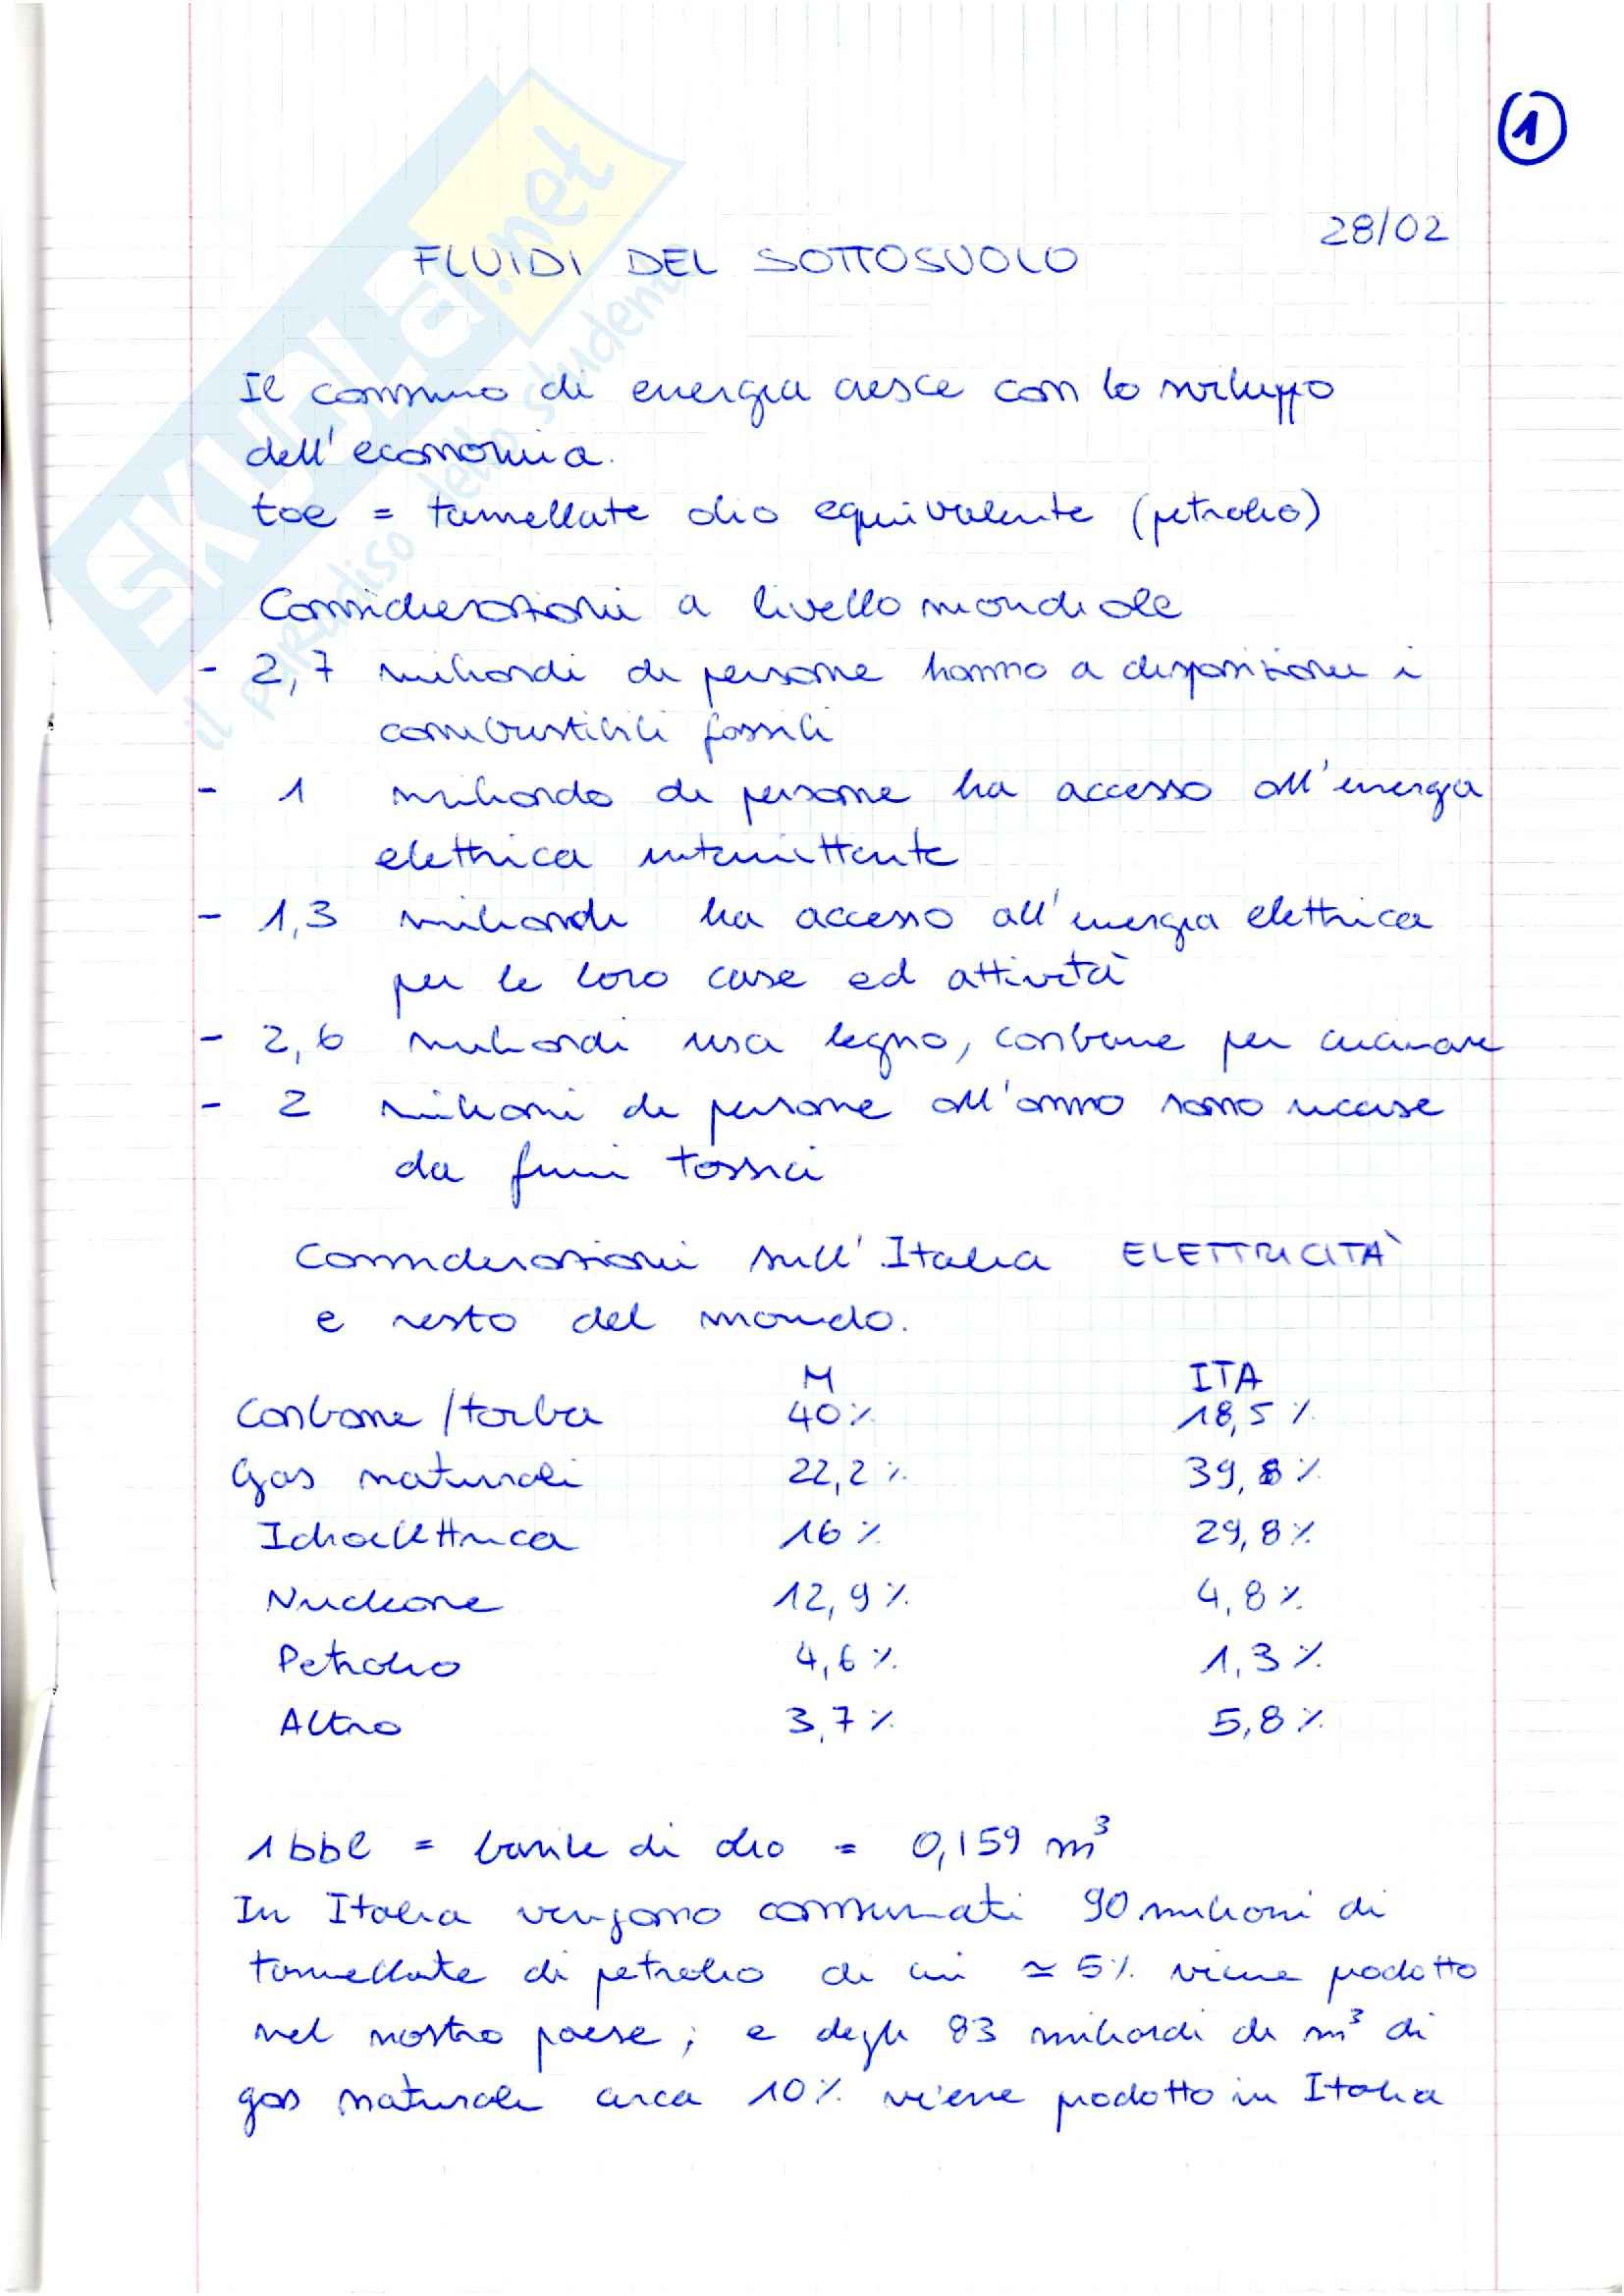 1
28/02
FLUIDI DEL SOTTOSUOLO
SKUOLA.net
il paradiso dello studente
Il consumo di energia cresce con lo sviluppo
dell'economia.
toe = tonnellate olio equivalente (petrolio)
Considerazioni a livello mondiale
- 2,7 miliardi di persone hanno a disposizione i
combustibili fossili
- 1 miliardo di persone ha accesso all'energia
elettrica intermittente
- 1,3 miliardi ha accesso all'energia elettrica
per le loro case ed attività
- 2,6 miliardi usa legno, carbone per cucinare
- 2 milioni di persone all'anno sono uccise
da fumi tossici
Considerazioni sull'Italia ELETTRICITÀ
e resto del mondo.
M ITA
Carbone/torba 40% 18,5%
Gas naturali 22,2% 39,8%
Idroelettrica 16% 29,8%
Nucleare 12,9% 4,8%
Petrolio 4,6% 1,3%
Altro 3,7% 5,8%
1 bbl = barile di olio = 0,159 m³
In Italia vengono consumati 90 milioni di
tonnellate di petrolio di cui ≃ 5% viene prodotto
nel nostro paese; e degli 83 miliardi di m³ di
gas naturale circa 10% viene prodotto in Italia